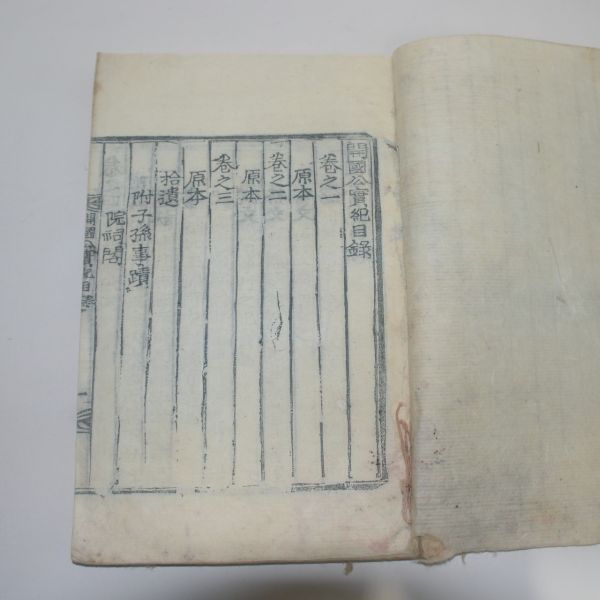 開國公實紀目錄
卷之一
原本
卷之二
原本
卷之三
原本
拾遺
附子孫事蹟
院祠閣
開國公實紀目錄